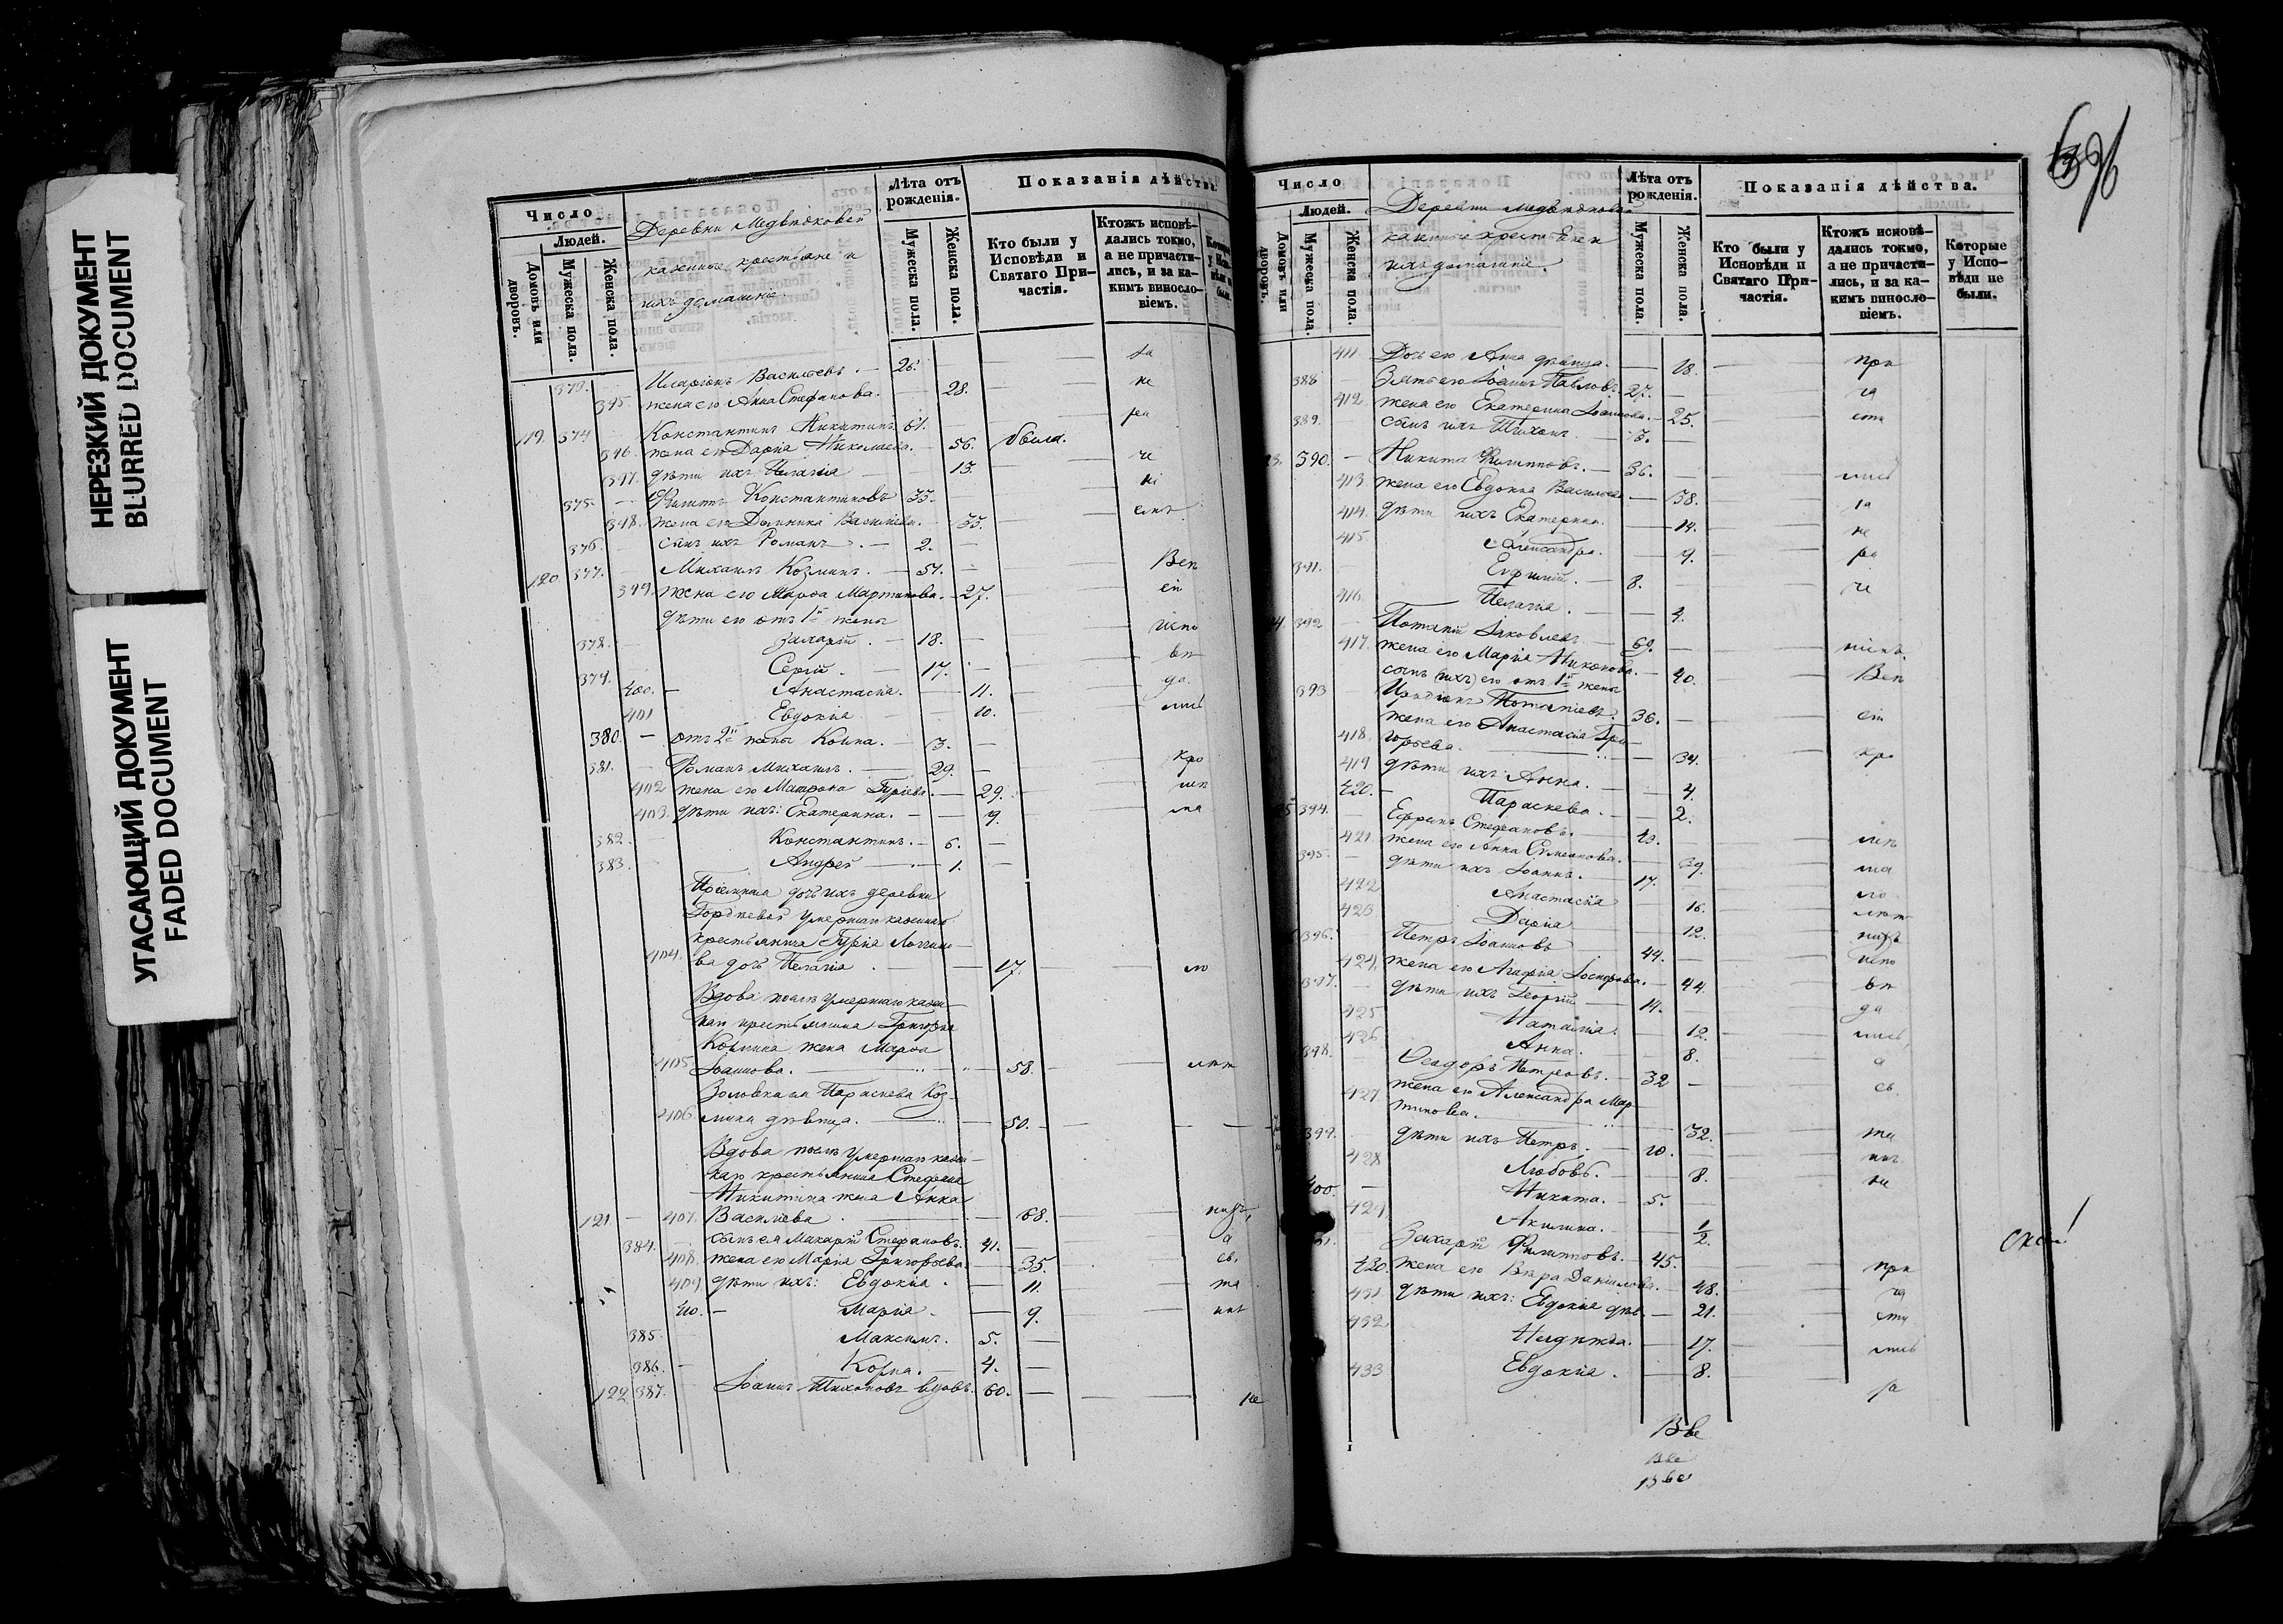 НЕРЕЗКИЙ ДОКУМЕНТ
BLURRED DOCUMENT
УГАСАЮЩИЙ ДОКУМЕНТ
FADED DOCUMENT
Число
Людей.
Домовъ или дворовъ.
Мужеска пола.
Женска пола.
Деревни Медвѣдковой
казенные крестьяне и
ихъ домашніе.
Лѣта отъ рожденія.
Мужеска пола.
Женска пола.
Показанія дѣйства.
Кто были у Исповѣди и Святаго Причастія.
Ктожъ исповѣдались токмо, а не причастились, и за какимъ винословіемъ.
373. Иларіонъ Васильевъ. 26. за
395. жена его Анна Стефанова. 28. не
119. 374 Константинъ Никитинъ 61. ра
396. жена его Дарія Николаева. 56. была.
397. дѣти ихъ Пелагія 13. че
375. Филиппъ Константиновъ 35. ні
398. жена его Домника Васильева. 35. емъ
376. сынъ ихъ Романъ. 2.
120. 377. Михаилъ Козминъ. 51. Всп
399. жена его Марѳа Мартинова. 27. ей
дѣти его отъ 1й жены
378. Захарій. 18. испо
379. Сергій. 17. вѣ
400. Анастасія. 11. да
401 Евдокія. 10. лись
380. отъ 2й жены Козма. 3.
381. Романъ Михаилъ. 29. кро
402 жена его Матрона Гуріева. 29. мѣ
403. дѣти ихъ: Екатерина. 9. ма
382. Константинъ. 6.
383. Андрей 1.
Пріемная дочь ихъ деревни
умершаго казеннаго
крестьянина Гурія
404. ва дочь Пелагія 17. ло
Вдова послѣ умершаго казен-
наго крестьянина Григорія
Козмина жена Марѳа
405 Іоаннова. 58. лѣт
Золовка ея Параскева Коз-
406 мина дѣвица. 50.
Вдова послѣ умершаго казен-
наго крестьянина Стефана
Никитина жена Анна
121. 407. Васильева 68. нихъ,
384. сынъ ея Макарій Стефановъ. 41. а
408. жена его Марія Григорьева. 35. св.
409 дѣти ихъ: Евдокія. 11. та
410. Марія. 9. инъ
385. Максимъ. 5.
386. Козма. 4.
122 387. Іоаннъ Тихоновъ вдовъ. 60. не
Число
Людей.
Домовъ или дворовъ.
Мужеска пола.
Женска пола.
Деревни Медвѣдковой
казенные крестьяне и
ихъ домашніе.
Лѣта отъ рожденія.
Мужеска пола.
Женска пола.
Показанія дѣйства.
Кто были у Исповѣди и Святаго Причастія.
Ктожъ исповѣдались токмо, а не причастились, и за какимъ винословіемъ.
Которые у Исповѣди не были.
411. Дочь его Анна дѣвица. 18. при
388 Зять его Іоаннъ Павловъ. 27. ча
412. жена его Екатерина Іоаннова. 25. сти
389. сынъ ихъ Тихонъ. 3.
390. Никита Филипповъ. 36. лись
413 жена его Евдокія Васильева 38. за
414. дѣти ихъ Екатерина. 14. не
415. Александра. 9. ра
391. Евфимій. 8. че
416. Пелагія. 4.
392 Потапій Іаковлевъ 69. ніемъ.
417. жена его Марія Никонова. 40. Всп
сынъ (ихъ) его отъ 1й жены
393 Иродіонъ Потапіевъ. 36. ей
жена его Анастасія Гри-
418. горьева. 34. кро
419 дѣти ихъ: Анна. 4.
420. Параскева. 2.
394. Ефремъ Стефановъ. 40. мѣ
421. жена его Анна Симеонова. 39. ма
395. дѣти ихъ Іоаннъ. 17. ло
422 Анастасія 16. лѣт
423 Дарія 12. нихъ
396. Петръ Іоанновъ 44. испо
424. жена его Агафія Іосифова. 44. вѣ
397. дѣти ихъ Георгій 14. да
425 Наталія. 12. лись,
426 Анна. 8. а
398. Ѳеодоръ Петровъ. 32 св.
427 жена его Александра Мар-
тинова. 32. та
399. дѣти ихъ Петръ. 10. инъ
428 Любовь. 8. не
400. Никита. 5.
429 Акилина. 1/2.
Захарій Филипповъ. 45. при
430. жена его Вѣра Даніилова. 48. ча
431. дѣти ихъ: Евдокія дѣв. 21. сти
432 Надежда. 17. лись
433 Евдокія. 8. за
Все
Все
Все